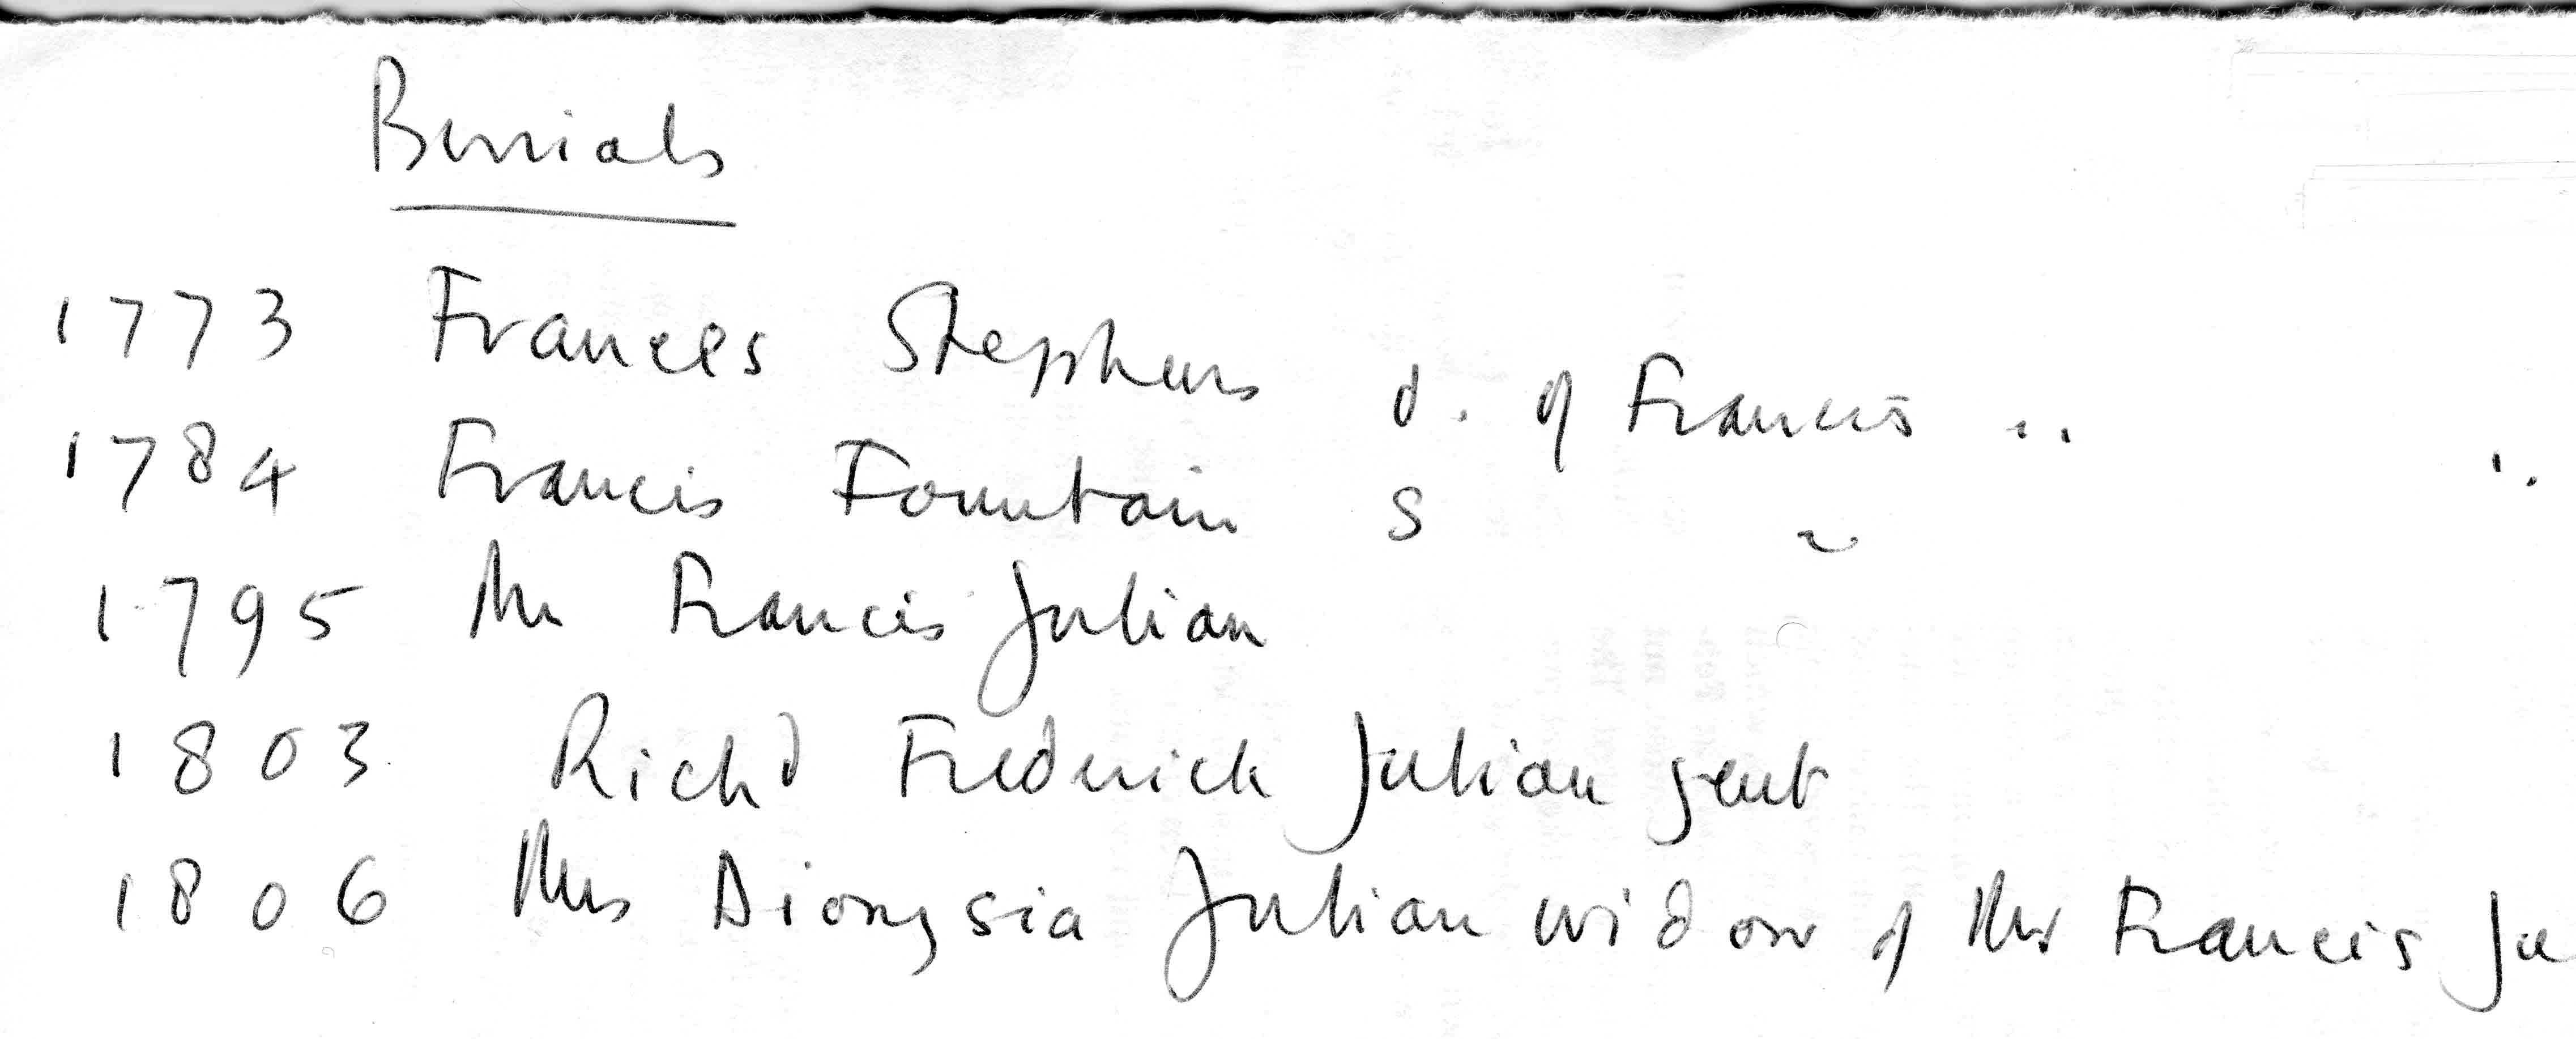 Burials
1773 Frances Stephens d. of Francis " "
1784 Francis Fountain S ~
1795 Mr Francis Julian
1803 Richd Frederick Julian gent
1806 Mrs Dionysia Julian widow of Mr Francis Ju